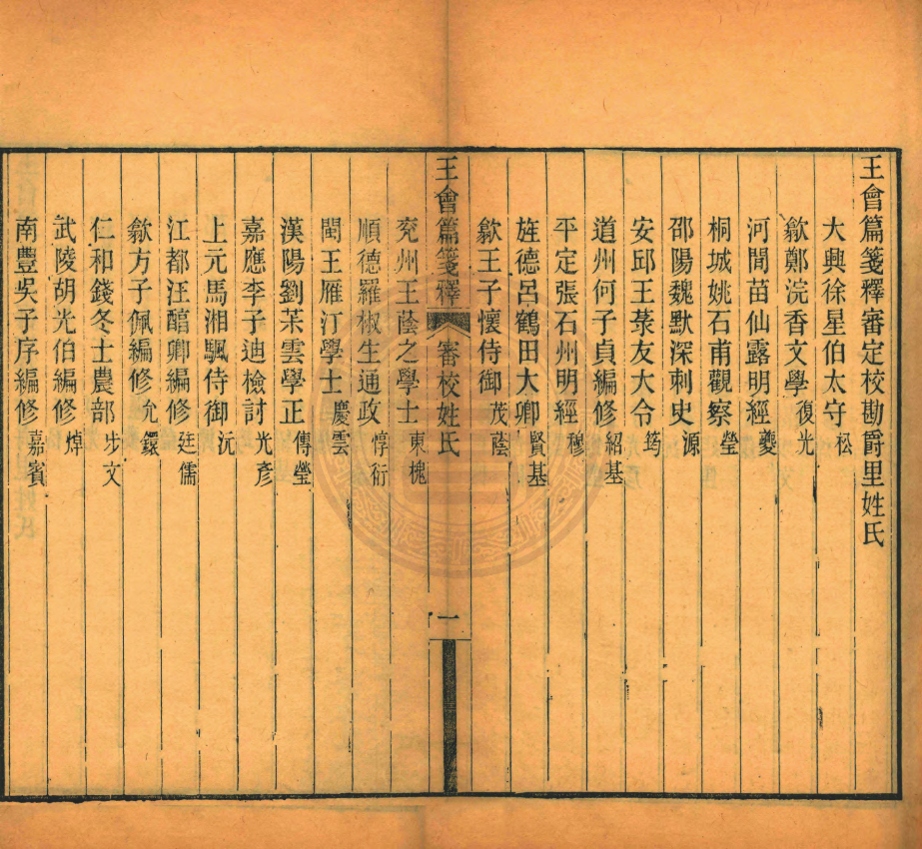 王會篇箋釋審定校勘爵里姓氏
大興徐星伯太守松
歙鄭浣香文學復光
河間苗仙露明經夔
桐城姚石甫觀察瑩
邵陽魏默深刺史源
安邱王菉友大令筠
道州何子貞編修紹基
平定張石州明經穆
旌德呂鶴田大卿賢基
歙王子懷侍御茂蔭
王會篇箋釋 審校姓氏 一
兖州王蔭之學士東槐
順德羅椒生通政惇衍
閩王雁汀學士慶雲
漢陽劉茮雲學正傳瑩
嘉應李子迪檢討光彥
上元馬湘颿侍御沅
江都汪醇卿編修廷儒
歙方子佩編修允鐶
仁和錢冬士農部步文
武陵胡光伯編修焯
南豐吳子序編修嘉賓